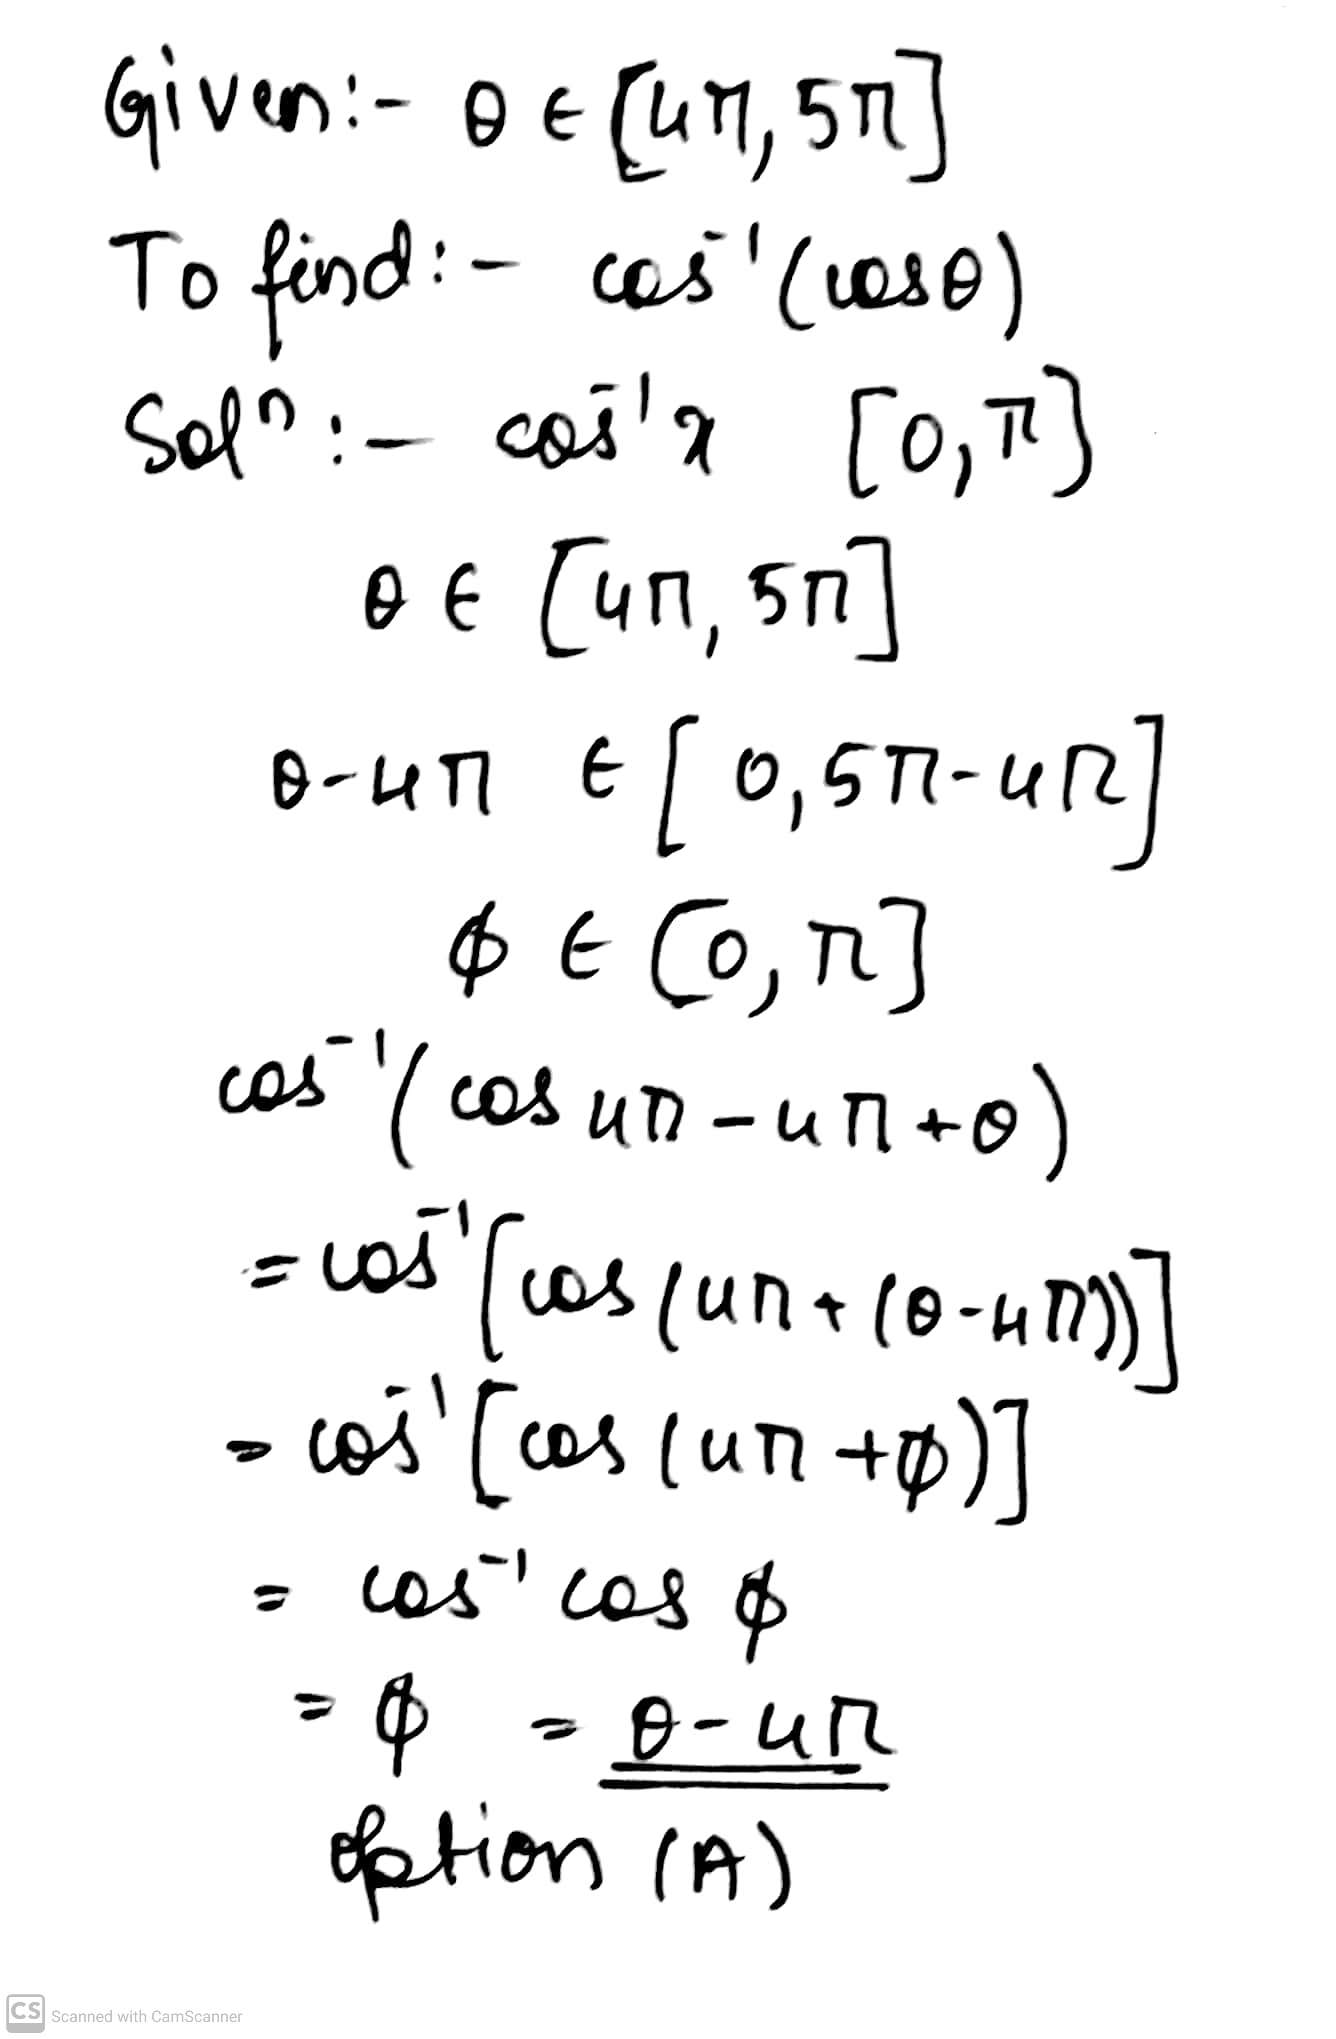 Given:- θ ∈ [4π, 5π]
To find:- cos⁻¹(cosθ)
Solⁿ:- cos⁻¹x [0, π]
θ ∈ [4π, 5π]
θ-4π ∈ [0, 5π-4π]
ϕ ∈ [0, π]
cos⁻¹(cos 4π - 4π + θ)
= cos⁻¹[cos(4π + (θ-4π))]
= cos⁻¹[cos(4π + ϕ)]
= cos⁻¹ cos ϕ
= ϕ = θ-4π
option (A)
CS Scanned with CamScanner